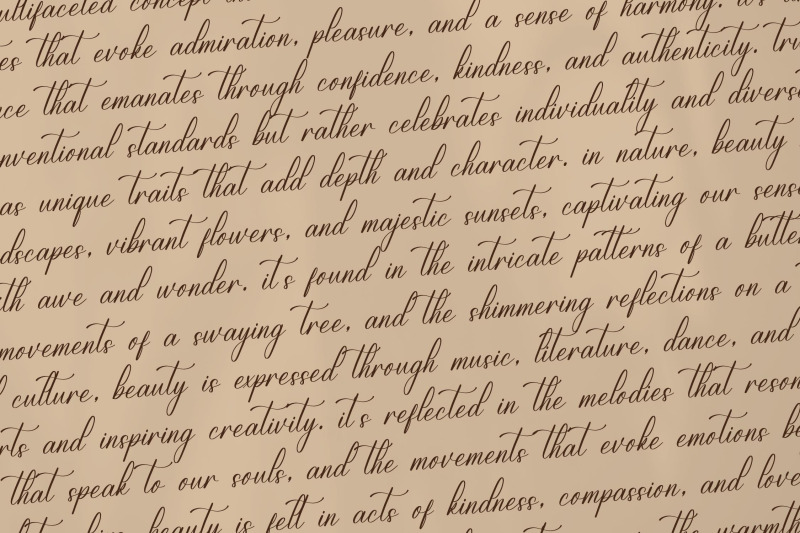 concept
that evoke admiration, pleasure, and a sense of harmony. it's
that emanates through confidence, kindness, and authenticity.
standards but rather celebrates individuality and
as unique traits that add depth and character. in nature, beauty
vibrant flowers, and majestic sunsets, captivating our
awe and wonder. it's found in the intricate patterns of a
movements of a swaying tree, and the shimmering reflections on a
culture, beauty is expressed through music, literature, dance, and
and inspiring creativity. it's reflected in the melodies that
that speak to our souls, and the movements that evoke emotions
beauty is felt in acts of kindness, compassion, and love
the warmth